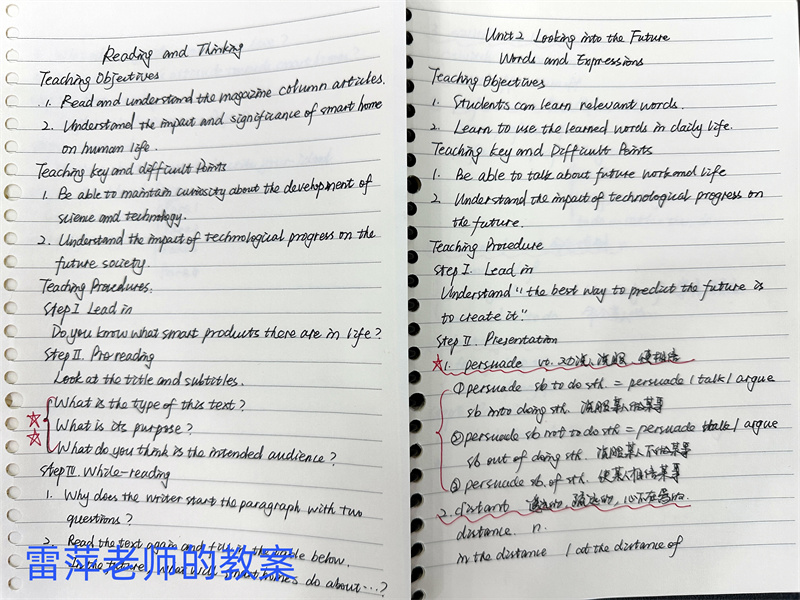 Reading and Thinking
Teaching Objectives
1. Read and understand the magazine column articles.
2. Understand the impact and significance of smart home
on human life.
Teaching key and difficult Points
1. Be able to maintain curiosity about the development of
science and technology.
2. Understand the impact of technological progress on the
future society.
Teaching Procedures.
Step I Lead in
Do you know what smart products there are in life?
Step II. Pre reading
Look at the title and subtitles.
What is the type of this text?
What is its purpose?
What do you think is the intended audience?
Step III. While-reading
1. Why does the writer start the paragraph with two
questions?
2. Read the text again and fill in the table below.
In the future, what will smart homes do about...?
雷萍老师的教案
Unit 2 Looking into the Future
Words and Expressions
Teaching Objectives
1. Students can learn relevant words.
2. Learn to use the learned words in daily life.
Teaching key and Difficult Points
1. Be able to talk about future work and life
2. Understand the impact of technological progress on
the future.
Teaching Procedure
Step I. Lead in
Understand "the best way to predict the future is
to create it."
Step II. Presentation
1. persuade vt. 劝说,说服,使相信
①persuade sb to do sth. = persuade / talk / argue
sb into doing sth. 说服某人做某事
②persuade sb not to do sth = persuade talk / argue
sb out of doing sth. 说服某人不做某事
③persuade sb. of sth. 使某人相信某事
2. distant 遥远的, 疏远的, 心不在焉的.
distance. n.
in the distance / at the distance of